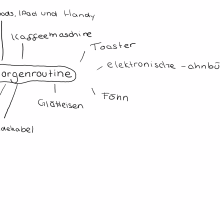 ods, IPad und Handy
Kaffeemaschine
Toaster
elektronische -ahnbü
orgenroutine
Glätteisen
Föhn
dekabel